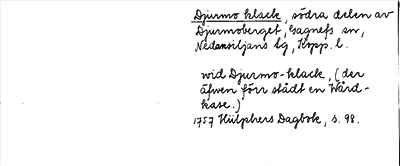 Djurmo klack, södra delen av
Djurmoberget, Gagnefs sn,
Nedansiljans tg, Kopp. l.
wid Djurmo-klack, (der
äfwen förr stådt en Wård-
kase.)
1757 Hülphers Dagbok, s. 98.